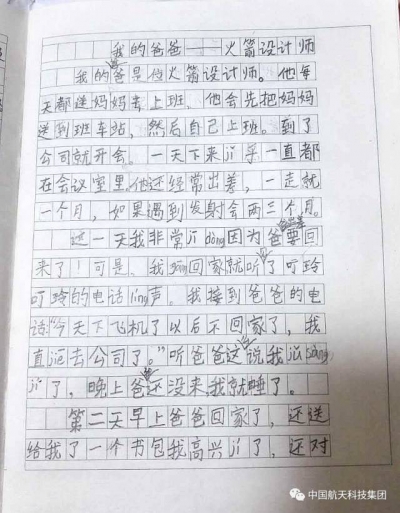 我的爸爸——火箭设计师
我的爸爸是位火箭设计师。他每
天都送妈妈去上班，他会先把妈妈
送到班车站，然后自己上班。到了
公司就开会。一天下来jī乎一直都
在会议室里。他还经常出差，一走就
一个月，如果遇到发射会两三个月。
这一天我非常jī dòng因为爸爸要回
来了！可是、我gāng回家就听了叮玲
叮玲的电话líng声。我接到爸爸的电
话“今天下飞机了以后不回家了，我
直接去公司了。”听爸爸这说我
jí了，晚上爸爸还没来，我就睡了。
第二天早上爸爸回家了，还送
给我了一个书包我高兴jí了，还对
中国航天科技集团